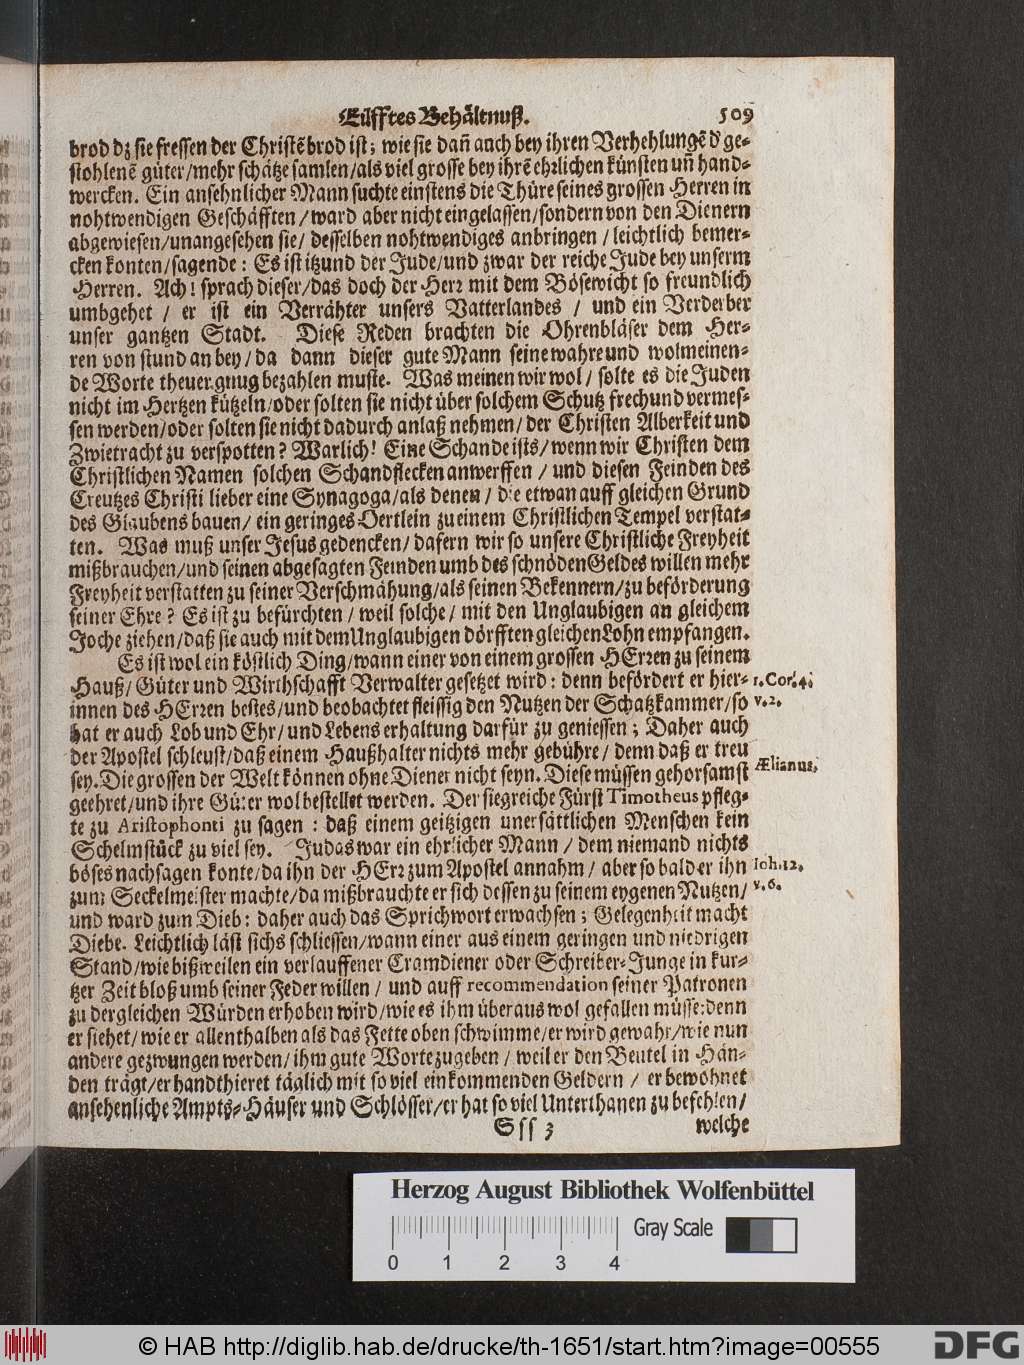 Eilfftes Behältnuß. 509
brod dz sie fressen der Christẽ brod ist; wie sie dañ auch bey ihren Verhehlungẽ d' ge-
stohlenẽ güter/mehr schätze samlen/als viel grosse bey ihrẽ ehrlichen künsten uñ hand-
wercken. Ein ansehnlicher Mann suchte einstens die Thüre seines grossen Herren in
nohtwendigen Geschäfften/ward aber nicht eingelassen/sondern von den Dienern
abgewiesen/unangesehen sie/ desselben nohtwendiges anbringen/leichtlich bemer-
cken konten/sagende: Es ist itzund der Jude/und zwar der reiche Jude bey unserm
Herren. Ach! sprach dieser/das doch der Herr mit dem Bösewicht so freundlich
umbgehet / er ist ein Verrähter unsers Vatterlandes / und ein Verderber
unser gantzen Stadt. Diese Reden brachten die Ohrenbläser dem Her-
ren von stund an bey/da dann dieser gute Mann seine wahre und wolmeinen-
de Worte theuer gnug bezahlen muste. Was meinen wir wol/ solte es die Juden
nicht im Hertzen kützeln/oder solten sie nicht über solchem Schutz frech und vermes-
sen werden/oder solten sie nicht dadurch anlaß nehmen/der Christen Alberkeit und
Zwietracht zu verspotten? Warlich! Eine Schande ists/wenn wir Christen dem
Christlichen Namen solchen Schandflecken anwerffen/und diesen Feinden des
Creutzes Christi lieber eine Synagoga/als denen/die etwan auff gleichen Grund
des Glaubens bauen/ein geringes Oertlein zu einem Christlichen Tempel verstat-
ten. Was muß unser Jesus gedencken/dafern wir so unsere Christliche Freyheit
mißbrauchen/und seinen abgesagten Feinden umb des schnöden Geldes willen mehr
Freyheit verstatten zu seiner Verschmähung/als seinen Bekennern/zu beförderung
seiner Ehre? Es ist zu befürchten/weil solche/mit den Unglaubigen an gleichem
Joche ziehen/daß sie auch mit dem Unglaubigen dörfften gleichen Lohn empfangen.
Es ist wol ein köstlich Ding/wann einer von einem grossen HErren zu seinem
Hauß/Güter und Wirthschafft Verwalter gesetzet wird: denn befördert er hier- 1. Cor. 4.
innen des HErren bestes/und beobachtet fleissig den Nutzen der Schatzkammer/so v. 2.
hat er auch Lob und Ehr/und Lebens erhaltung darfür zu geniessen; Daher auch
der Apostel schleust/daß einem Haußhalter nichts mehr gebühre/denn daß er treu
sey. Die grossen der Welt können ohne Diener nicht seyn. Diese müssen gehorsamst Ælianus.
geehret/und ihre Güter wol bestellet werden. Der siegreiche Fürst Timotheus pfleg-
te zu Aristophonti zu sagen: daß einem geitzigen unersättlichen Menschen kein
Schelmstück zu viel sey. Judas war ein ehrlicher Mann/dem niemand nichts
böses nachsagen konte/da ihn der HErr zum Apostel annahm/aber so bald er ihn Ioh. 12.
zum Seckelmeister machte/da mißbrauchte er sich dessen zu seinem eygenen Nutzen/ v. 6.
und ward zum Dieb: daher auch das Sprichwort erwachsen; Gelegenheit macht
Diebe. Leichtlich läst sichs schliessen/wann einer aus einem geringen und niedrigen
Stand/wie bißweilen ein verlauffener Cramdiener oder Schreiber-Junge in kur-
tzer Zeit bloß umb seiner Feder willen/ und auff recommendation seiner Patronen
zu dergleichen Würden erhoben wird/wie es ihm überaus wol gefallen müsse: denn
er siehet/wie er allenthalben als das Fette oben schwimme/er wird gewahr/wie nun
andere gezwungen werden/ihm gute Worte zugeben/weil er den Beutel in Hän-
den trägt/er handthieret täglich mit so viel einkommenden Geldern/ er bewohnet
ansehenliche Ampts-Häuser und Schlösser/er hat so viel Unterthanen zu befehlen/
Sss 3 welche
Herzog August Bibliothek Wolfenbüttel
Gray Scale
0 1 2 3 4
© HAB http://diglib.hab.de/drucke/th-1651/start.htm?image=00555
DFG